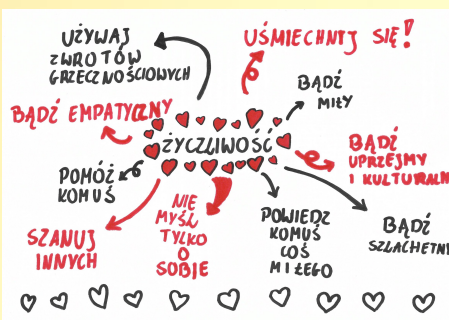 UŻYWAJ
ZWROTÓW
GRZECZNOŚCIOWYCH
UŚMIECHNIJ SIĘ!
BĄDŹ
MIŁY
BĄDŹ EMPATYCZNY
ŻYCZLIWOŚĆ
BĄDŹ
UPRZEJMY
I KULTURALN
POMÓŻ
KOMUŚ
NIE
MYŚL
TYLKO
O
SOBIE
POWIEDZ
KOMUŚ
COŚ
MIŁEGO
BĄDŹ
SZLACHETN
SZANUJ
INNYCH